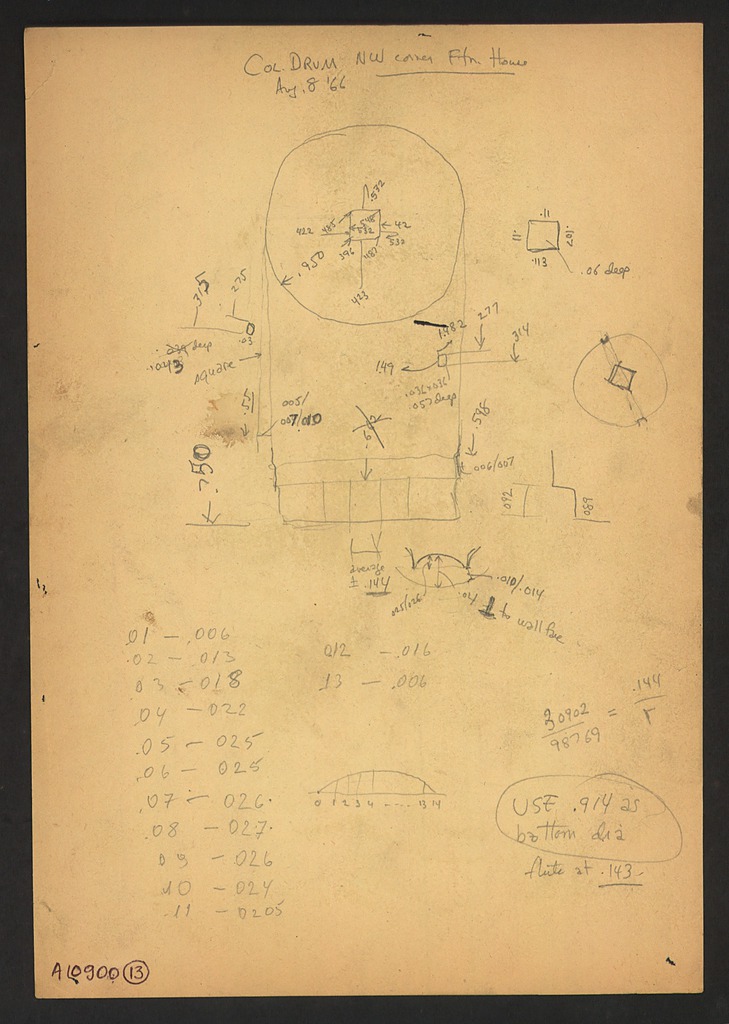 COL. DRUM NW corner Ftn. House
Aug. 8 '66
.532
422
.485
.42
.532
.530
.396
.487
.950
423
.11
.11
.107
.113
.06 deep
.315
.275
.03
.043 deep
square
.277
.314
1.482
1.49
.036x.036
.057 deep
.55
.005/
.007/.010
.598
.006/.007
.750
.092
.089
average
± .144
.010/.014
.025/.026
.024
⊥ to wall face
.01 — .006
.02 — .013
.03 — .018
.04 — .022
.05 — .025
.06 — .025
.07 — .026
.08 — .027
.09 — .026
.10 — .024
.11 — .0205
.012 — .016
.13 — .006
.30902 / .98769 = .144 / r
0 1 2 3 4 - - - - 13 14
USE .914 as
bottom dia
flute at .143
A10900 (13)